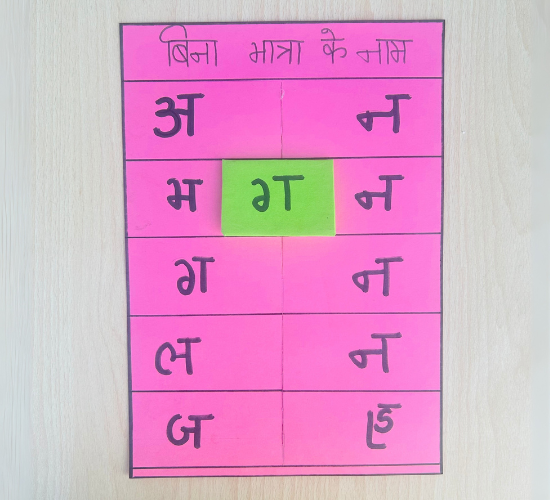 बिना मात्रा के नाम
अ न
भ ग न
ग न
ल न
ज ह